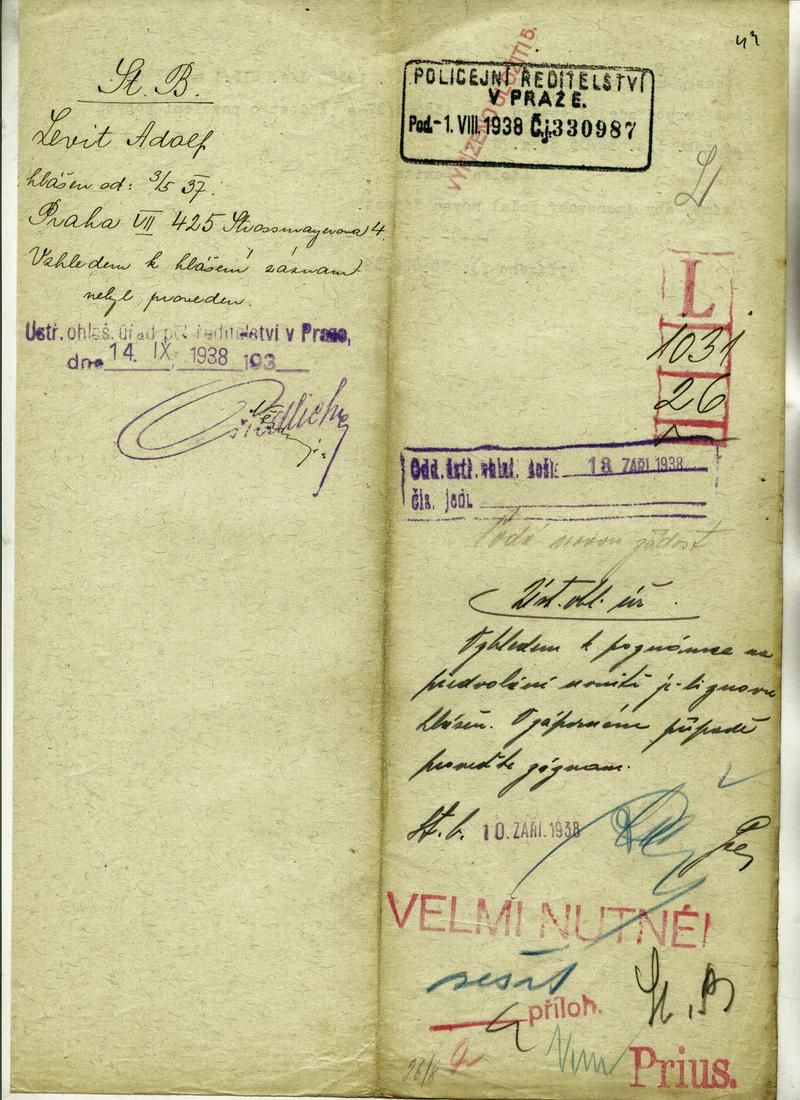 St. B.
Levit Adolf
hlášen od: 3/5 37.
Praha VII 425 Strossmayerova 4.
Vzhledem k hlášení záznam
nebyl proveden.
Ustř. ohlaš. úřad pol. ředitelství v Praze,
dne 14. IX. 1938 193
49
POLICEJNÍ ŘEDITELSTVÍ
V PRAZE.
Pod. -1. VIII. 1938 Čj. 330987
L
L
1031
26
Odd. ústř. ohlaš. došlo 13 ZÁŘÍ 1938
čís. jedn.
novou žádost
Úst. ohl. úř.
Vzhledem k poznámce na
předvolání je-li znovu
hlášen. V záporném případě
proveďte záznam.
St. b. 10. ZÁŘÍ. 1938
VELMI NUTNÉ!
sešit
příloh.
St. B
26/8
Prius.